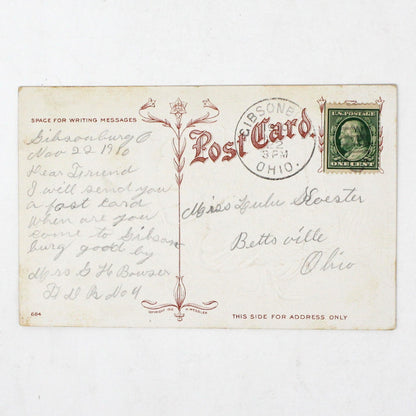 SPACE FOR WRITING MESSAGES
Gibsonburg O
Nov 22 1910
Dear Friend
I will send you
a post card
when are you
come to Gibson
burg good by
Mrs G H Bowser
No 4
684
Post Card.
GIBSONB
22
3 PM
OHIO.
U.S. POSTAGE
ONE CENT
Miss Lulu
Bettsville
Ohio
COPYRIGHT
THIS SIDE FOR ADDRESS ONLY